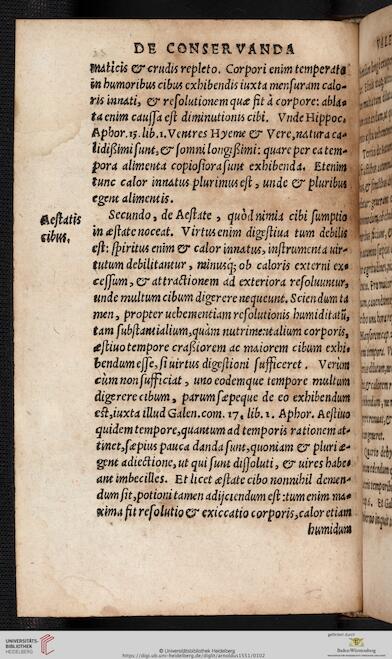 DE CONSERVANDA
maticis & crudis repleto. Corpori enim temperato
in humoribus cibus exhibendis iuxta mensuram calo-
ris innati, & resolutionem quæ fit à corpore: abla-
ta enim caussa est diminutionis cibi. Vnde Hippoc.
Aphor. 15. lib. 1. Ventres Hyeme & Vere, natura ca-
lidißimi sunt, & somni longißimi: quare per ea tem-
pora alimenta copiosiora sunt exhibenda. Etenim
tunc calor innatus plurimus est, unde & pluribus
egent alimentis.
Aestatis
cibus.
Secundo, de Aestate, quòd nimia cibi sumptio
in æstate noceat. Virtus enim digestiua tum debilis
est: spiritus enim & calor innatus, instrumenta uir-
tutum debilitantur, minusq; ob caloris externi ex-
cessum, & attractionem ad exteriora resoluuntur,
unde multum cibum digerere nequeunt. Sciendum ta
men, propter uehementiam resolutionis humiditatũ,
tam substantialium, quàm nutrimentalium corporis,
æstiuo tempore craßiorem ac maiorem cibum exhi-
bendum esse, si uirtus digestioni sufficeret. Verùm
cùm non sufficiat, uno eodemque tempore multum
digerere cibum, parum sæpeque de eo exhibendum
est, iuxta illud Galen. com. 17. lib. 1. Aphor. Aestiuo
quidem tempore, quantum ad temporis rationem at-
tinet, sæpius pauca danda sunt, quoniam & pluri e-
gent adiectione, ut qui sunt dissoluti, & uires habe-
ant imbecilles. Et licet æstate cibo nonnihil demen-
dum sit, potioni tamen adijciendum est: tum enim ma-
xima fit resolutio & exiccatio corporis, calor etiam
humidum
UNIVERSITÄTS-
BIBLIOTHEK
HEIDELBERG
© Universitätsbibliothek Heidelberg
https://digi.ub.uni-heidelberg.de/diglit/arnoldus1551/0102
gefördert durch
Baden-Württemberg